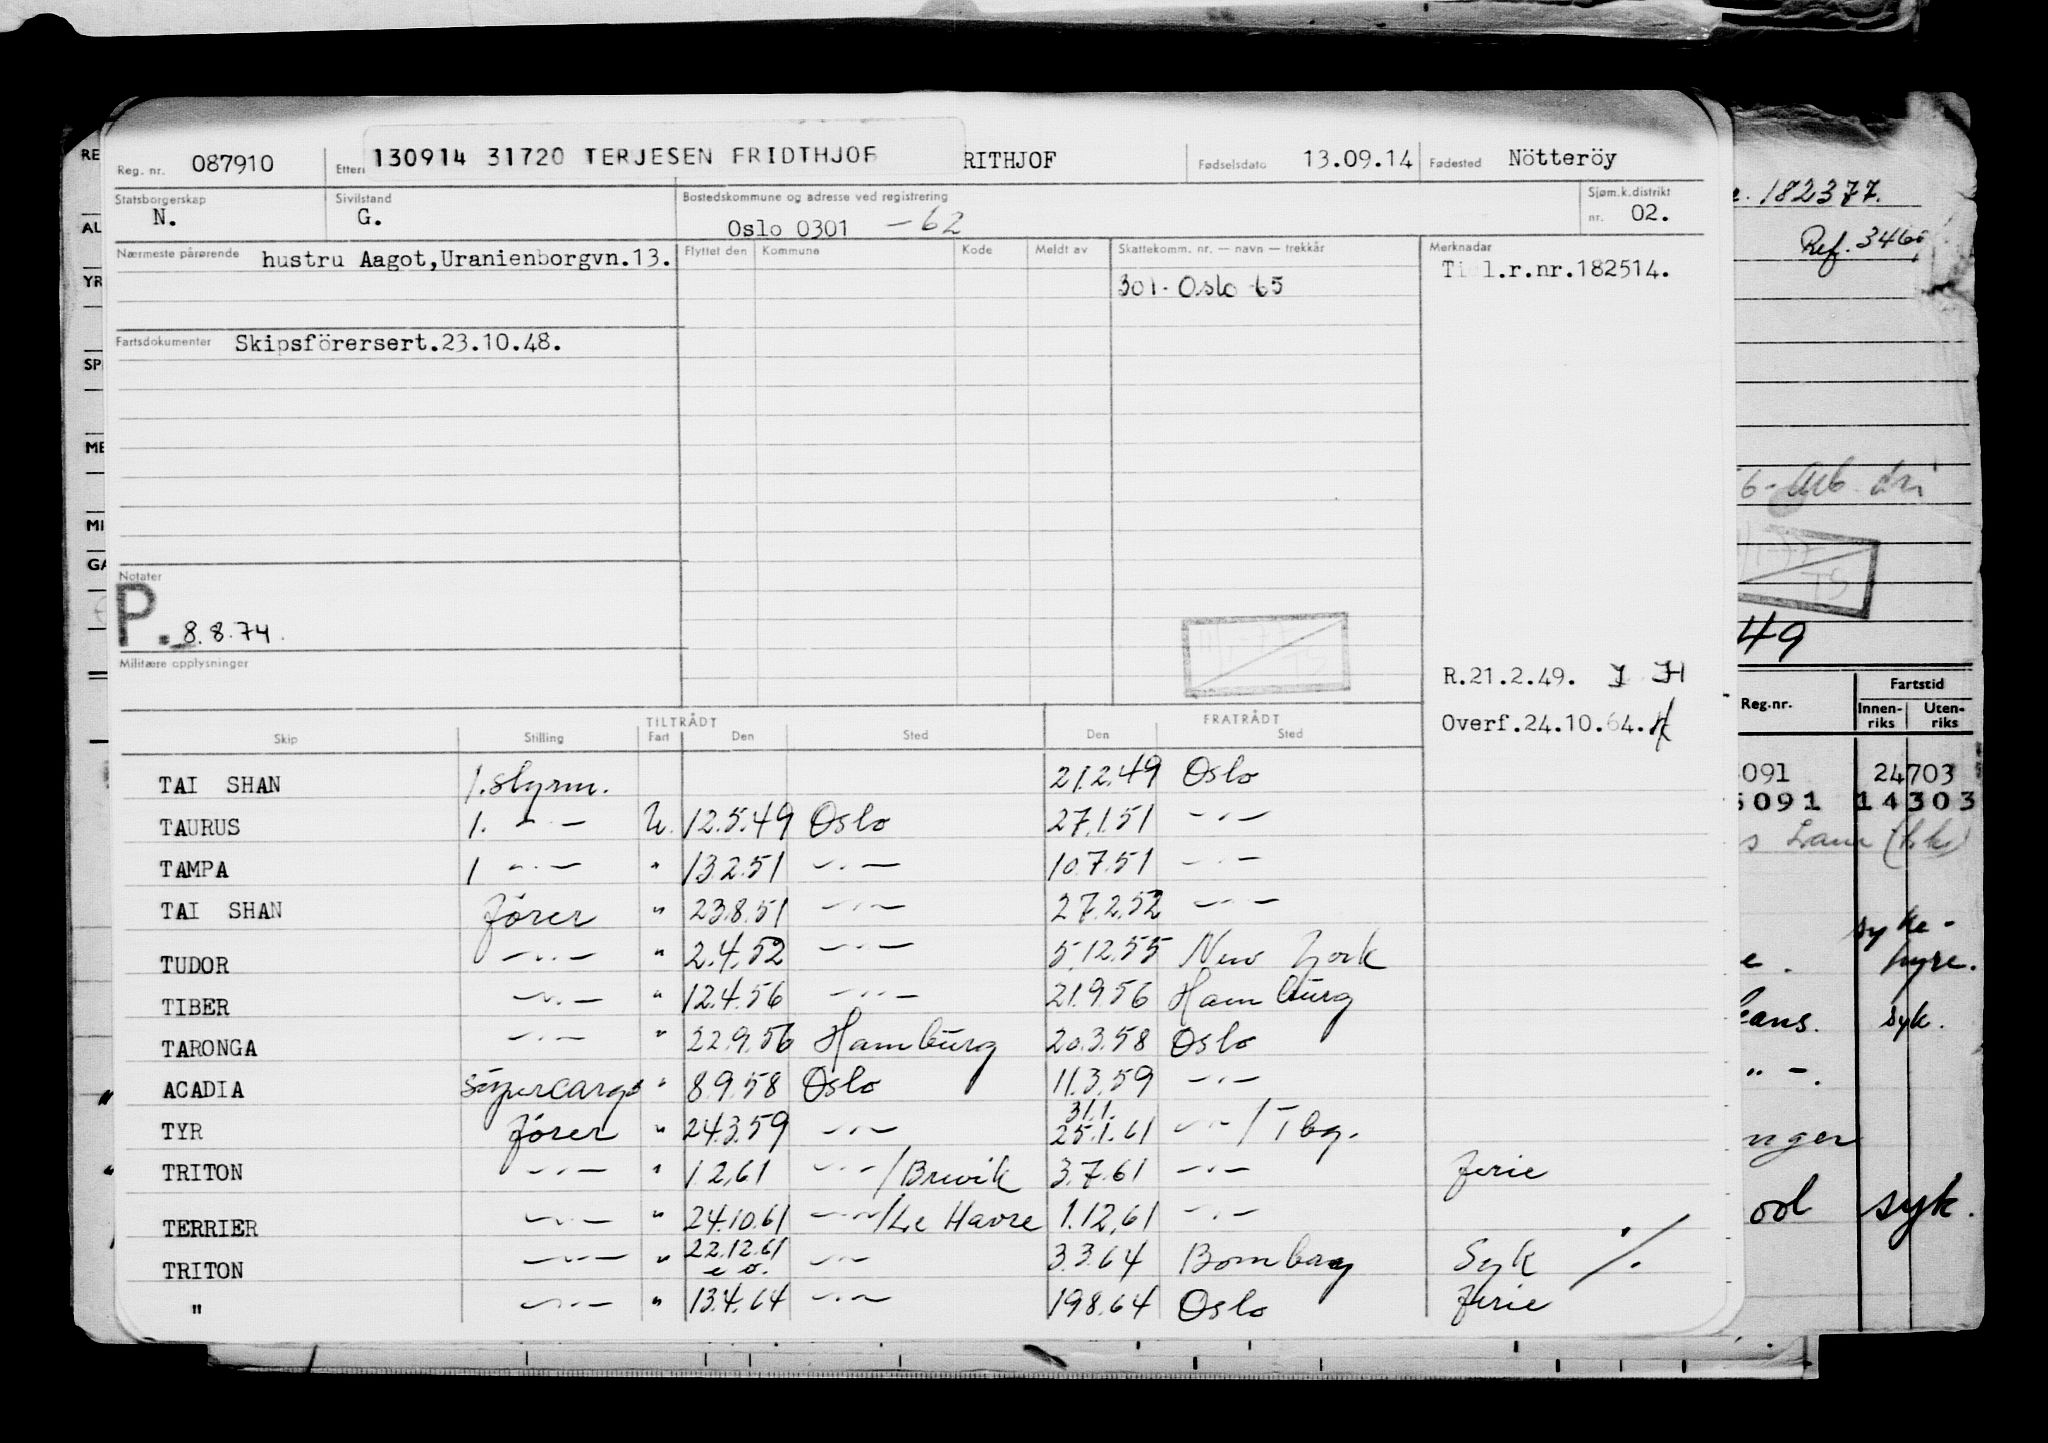 Reg. nr. 087910 Etter 130914 31720 TERJESEN FRIDTHJOF RITHJOF Fødselsdato 13.09.14 Fødested Nötteröy
Statsborgerskap N. Sivilstand G. Bostedskommune og adresse ved registrering Oslo 0301 -62 Sjøm.k.distrikt nr. 02.
Nærmeste pårørende hustru Aagot,Uranienborgvn.13. Flyttet den Kommune Kode Meldt av Skattekomm. nr. — navn — trekkår Merknader
301. Oslo 65 Til.r.nr.182514.
Fartsdokumenter Skipsförersert.23.10.48.
Notater
P. 8.8.74.
Militære opplysninger
R.21.2.49. J H
Overf.24.10.64.
TILTRÅDT FRATRÅDT
Skip Stilling Fart Den Sted Den Sted
TAI SHAN 1.styrm. 21.2.49 Oslo
TAURUS 1. —"— U. 12.5.49 Oslo 27.1.51 —"—
TAMPA 1 —"— " 13.2.51 —"— 10.7.51 —"—
TAI SHAN förer " 23.8.51 —"— 27.2.52 —"—
TUDOR —"— " 2.4.52 —"— 5.12.55 New York
TIBER —"— " 12.4.56 —"— 21.9.56 Hamburg
TARONGA —"— " 22.9.56 Hamburg 20.3.58 Oslo
ACADIA supercargo " 8.9.58 Oslo 11.3.59 —"—
TYR förer " 24.3.59 —"— 31.1. 25.1.61 —"—/Tbg.
TRITON —"— " 1.2.61 —"—/Brevik 3.7.61 —"— ferie
TERRIER —"— " 24.10.61 —"—/Le Havre 1.12.61 —"—
TRITON —"— " 22.12.61 e o. —"— 3.3.64 Bombay Syk ./.
" —"— " 13.4.64 —"— 19.8.64 Oslo ferie
RE
AU
YR
SP
ME
MI
GA
182377.
Ref. 346
49
Reg.nr. Fartstid
Innen-riks Uten-riks
091 24703
5091 14303
syke-
e. hyre.
eans. syk.
" -.
nger
ool syk.